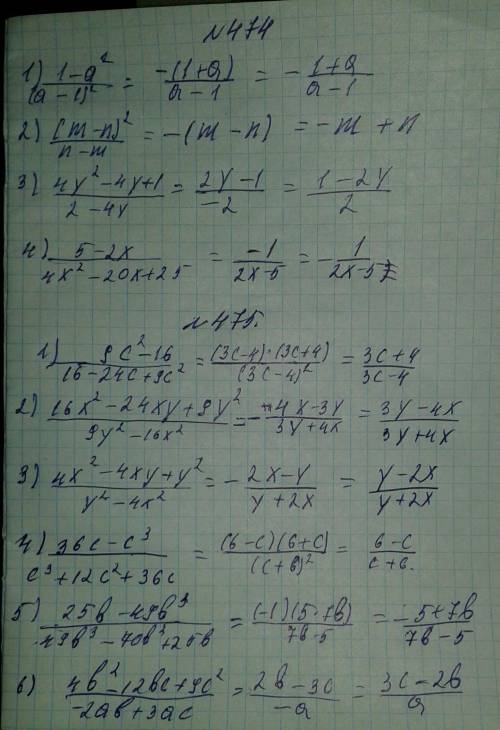 №474
1) (1-a²)/(a-1)² = -(1+a)/(a-1) = -(1+a)/(a-1)
2) (m-n)²/(n-m) = -(m-n) = -m+n
3) (4y²-4y+1)/(2-4y) = (2y-1)/(-2) = (1-2y)/2
4) (5-2x)/(4x²-20x+25) = -1/(2x-5) = -1/(2x-5)
№475.
1) (9c²-16)/(16-24c+9c²) = (3c-4)·(3c+4)/(3c-4)² = (3c+4)/(3c-4)
2) (16x²-24xy+9y²)/(9y²-16x²) = -(4x-3y)/(3y+4x) = (3y-4x)/(3y+4x)
3) (4x²-4xy+y²)/(y²-4x²) = -(2x-y)/(y+2x) = (y-2x)/(y+2x)
4) (36c-c³)/(c³+12c²+36c) = (6-c)(6+c)/(c+6)² = (6-c)/(c+6).
5) (25b-49b³)/(49b³-70b²+25b) = (-1)(5+7b)/(7b-5) = -(5+7b)/(7b-5)
6) (4b²-12bc+9c²)/(-2ab+3ac) = (2b-3c)/(-a) = (3c-2b)/a